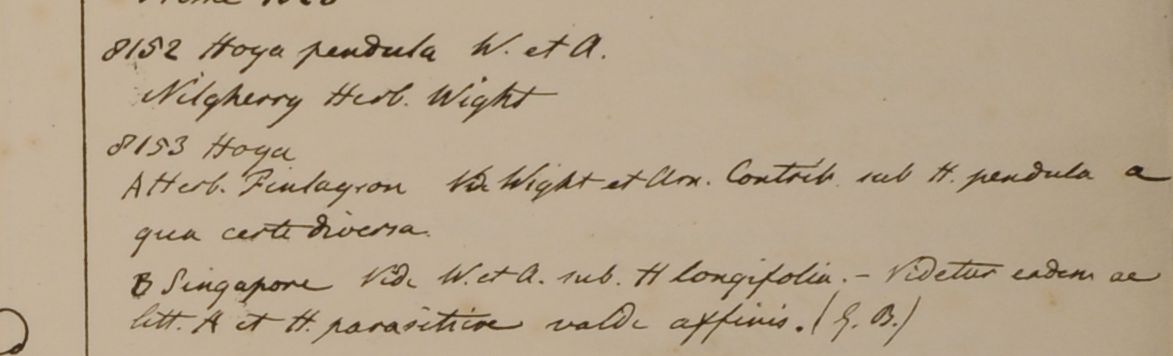 8152 Hoya pendula W. et A.
Nilgherry Herb. Wight
8153 Hoya
A Herb. Finlayson Vide Wight et Arn. Contrib. sub H. pendula a
qua certe diversa.
B Singapore Vide W. et A. sub. H longifolia. - Videtur eadem ac
litt. A et H. parasiticae valde affinis. (G. B.)